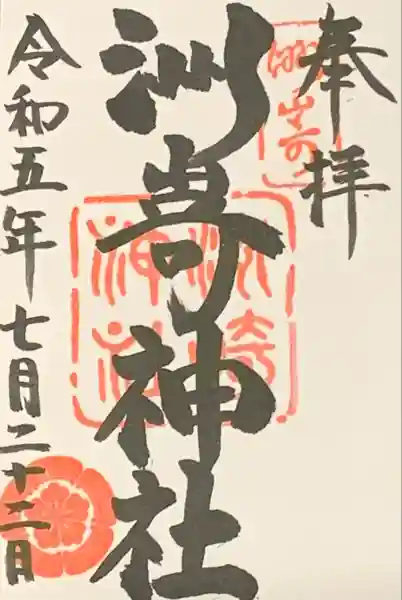 奉拝
洲嵜神社
洲崎神社
令和五年七月二十二日